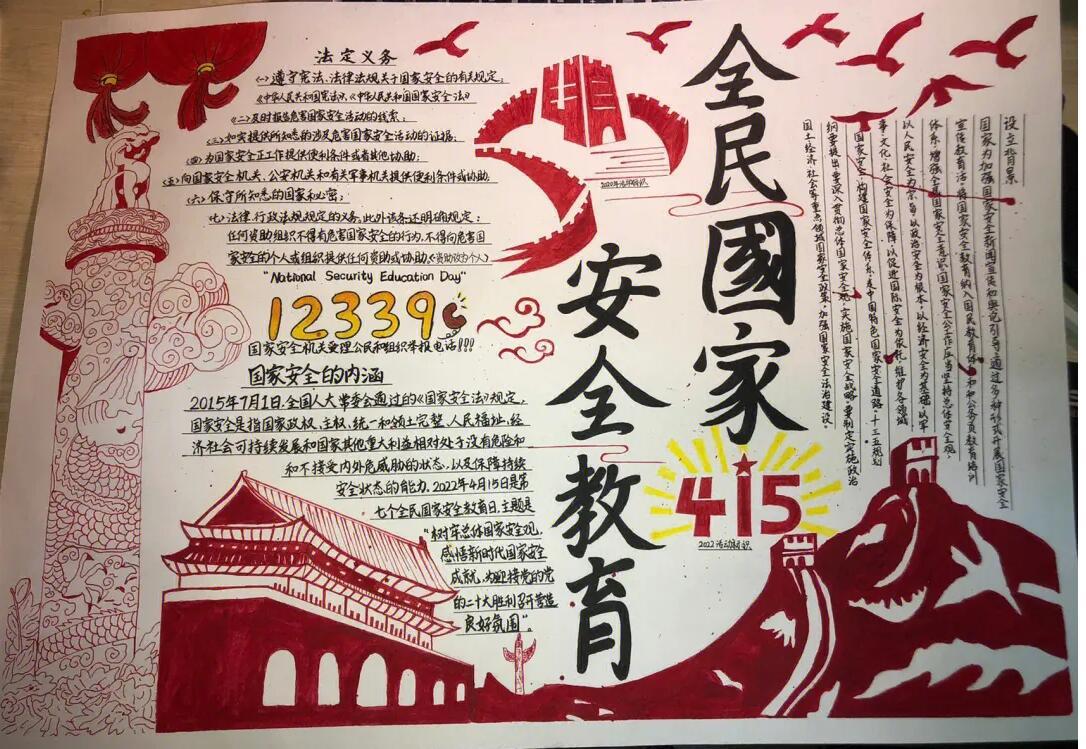 全民國家
安全教育
法定义务
(一)遵守宪法、法律法规关于国家安全的有关规定;
《中华人民共和国宪法》、《中华人民共和国国家安全法》
(二)及时报告危害国家安全活动的线索;
(三)如实提供所知悉的涉及危害国家安全活动的证据;
(四)为国家安全工作提供便利条件或者其他协助;
(五)向国家安全机关、公安机关和有关军事机关提供便利条件或协助
(六)保守所知悉的国家秘密;
(七)法律、行政法规规定的义务,此外该条还明确规定:
任何资助组织不得有危害国家安全的行为,不得向危害国
家安全的个人或组织提供任何资助或协助《资助设为个人》
"National Security Education Day"
12339
国家安全机关受理公民和组织举报电话!!!
国家安全的内涵
2015年7月1日,全国人大常委会通过的《国家安全法》规定,
国家安全是指国家政权、主权、统一和领土完整、人民福祉、经
济社会可持续发展和国家其他重大利益相对处于没有危险和
和不接受内外危威胁的状态,以及保障持续
安全状态的能力,2022年4月15日是第
七个全民国家安全教育日,主题是
"树牢总体国家安全观,
感悟新时代国家安全
成就,为迎接党的党
的二十大胜利召开营造
良好氛围"。
415
2022活动标识
设立背景
国家为加强国家安全新闻宣传和舆论引导,通过多种形式开展国家安全
宣传教育活动,将国家安全教育纳入国民教育体系和公务员教育培训
体系,增强全民国家安全意识,国家安全工作应当坚持总体国家安全观,
以人民安全为宗旨,以政治安全为根本,以经济安全为基础,以军
事、文化、社会安全为保障,以促进国际安全为依托,维护各领域
国家安全,构建国家安全体系,走中国特色国家安全道路,十三五规划
纲要提出,要深入贯彻总体国家安全观,实施国家安全战略,要制定实施政治
国土、经济、社会等重点领域国家安全政策,加强国家安全法治建设